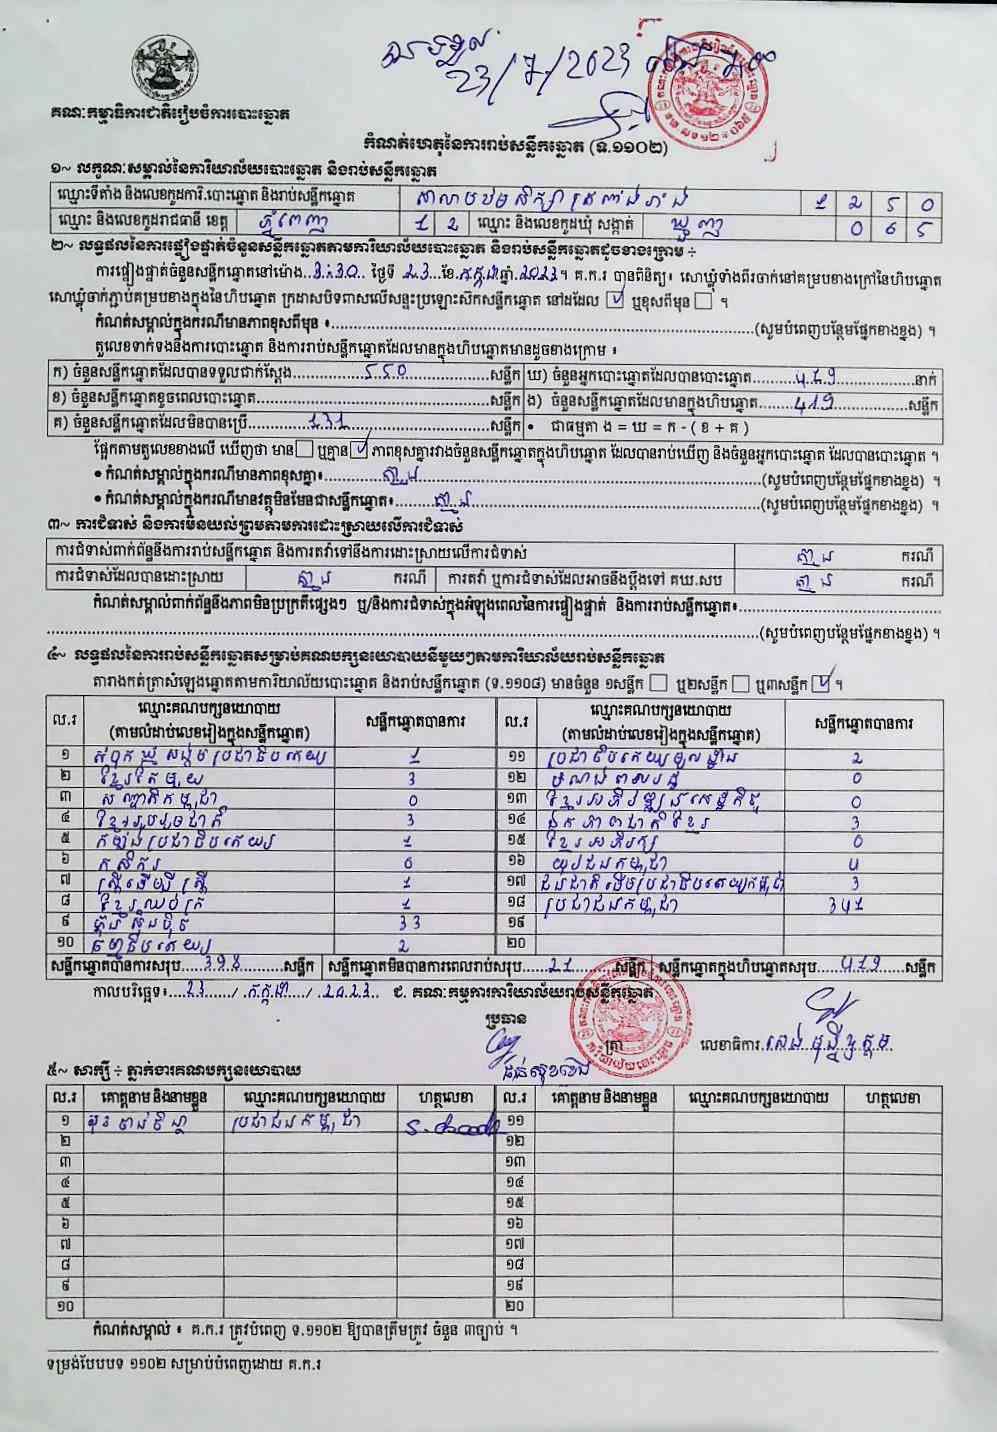 បានទទួល
23/7/2023
គណៈកម្មាធិការជាតិរៀបចំការបោះឆ្នោត
កំណត់ហេតុនៃការរាប់សន្លឹកឆ្នោត (ទ.១១០២)
១~ លក្ខណៈសម្គាល់នៃការិយាល័យបោះឆ្នោត និងរាប់សន្លឹកឆ្នោត
ឈ្មោះទីតាំង និងលេខកូដការិ.បោះឆ្នោត និងរាប់សន្លឹកឆ្នោត 1 2 5 0
ឈ្មោះ និងលេខកូដរាជធានី ខេត្ត ភ្នំពេញ 1 2 ឈ្មោះ និងលេខកូដឃុំ សង្កាត់ 0 6 5
២~ លទ្ធផលនៃការផ្ទៀងផ្ទាត់ចំនួនសន្លឹកឆ្នោតតាមការិយាល័យបោះឆ្នោត និងរាប់សន្លឹកឆ្នោតដូចខាងក្រោម ÷
ការផ្ទៀងផ្ទាត់ចំនួនសន្លឹកឆ្នោតនៅម៉ោង..3:30..ថ្ងៃទី 23..ខែ.កក្កដា.ឆ្នាំ.2023។ គ.ក.រ បានពិនិត្យ៖ សោឃ្លុំទាំងពីរចាក់នៅគម្របខាងក្រៅនៃហិបឆ្នោត
សោឃ្លុំចាក់ភ្ជាប់គម្របខាងក្នុងនៃហិបឆ្នោត ក្រដាសបិទពាសលើសន្ទះប្រឡោះស៊កសន្លឹកឆ្នោត នៅដដែល ☑ ឬខុសពីមុន ☐ ។
កំណត់សម្គាល់ក្នុងករណីមានភាពខុសពីមុន ៖..........(សូមបំពេញបន្ថែមផ្នែកខាងខ្នង) ។
តួលេខទាក់ទងនឹងការបោះឆ្នោត និងការរាប់សន្លឹកឆ្នោតដែលមានក្នុងហិបឆ្នោតមានដូចខាងក្រោម ៖
ក) ចំនួនសន្លឹកឆ្នោតដែលបានទទួលជាក់ស្តែង..........550..........សន្លឹក ឃ) ចំនួនអ្នកបោះឆ្នោតដែលបានបោះឆ្នោត..........419..........នាក់
ខ) ចំនួនសន្លឹកឆ្នោតខូចពេលបោះឆ្នោត..........សន្លឹក ង) ចំនួនសន្លឹកឆ្នោតដែលមានក្នុងហិបឆ្នោត..........419..........សន្លឹក
គ) ចំនួនសន្លឹកឆ្នោតដែលមិនបានប្រើ..........131..........សន្លឹក • ជាធម្មតា ង = ឃ = ក - ( ខ + គ )
ផ្អែកតាមតួលេខខាងលើ ឃើញថា មាន ☐ ឬគ្មាន ☑ ភាពខុសគ្នារវាងចំនួនសន្លឹកឆ្នោតក្នុងហិបឆ្នោត ដែលបានរាប់ឃើញ និងចំនួនអ្នកបោះឆ្នោត ដែលបានបោះឆ្នោត ។
• កំណត់សម្គាល់ក្នុងករណីមានភាពខុសគ្នា៖..........គ្មាន..........(សូមបំពេញបន្ថែមផ្នែកខាងខ្នង) ។
• កំណត់សម្គាល់ក្នុងករណីមានវត្ថុមិនមែនជាសន្លឹកឆ្នោត៖..........គ្មាន..........(សូមបំពេញបន្ថែមផ្នែកខាងខ្នង) ។
៣~ ការជំទាស់ និងការមិនយល់ព្រមតាមការដោះស្រាយលើការជំទាស់
ការជំទាស់ពាក់ព័ន្ធនឹងការរាប់សន្លឹកឆ្នោត និងការតវ៉ាទៅនឹងការដោះស្រាយលើការជំទាស់ គ្មាន ករណី
ការជំទាស់ដែលបានដោះស្រាយ គ្មាន ករណី ការតវ៉ា ឬការជំទាស់ដែលអាចនឹងប្តឹងទៅ គឃ.សប គ្មាន ករណី
កំណត់សម្គាល់ពាក់ព័ន្ធនឹងភាពមិនប្រក្រតីផ្សេងៗ ឬ/និងការជំទាស់ក្នុងអំឡុងពេលនៃការផ្ទៀងផ្ទាត់ និងការរាប់សន្លឹកឆ្នោត៖..........
..........(សូមបំពេញបន្ថែមផ្នែកខាងខ្នង) ។
៤~ លទ្ធផលនៃការរាប់សន្លឹកឆ្នោតសម្រាប់គណបក្សនយោបាយនីមួយៗតាមការិយាល័យរាប់សន្លឹកឆ្នោត
តារាងកត់ត្រាសំឡេងឆ្នោតតាមការិយាល័យបោះឆ្នោត និងរាប់សន្លឹកឆ្នោត (ទ.១១០៨) មានចំនួន ១សន្លឹក ☐ ឬ២សន្លឹក ☐ ឬ៣សន្លឹក ☑ ។
ល.រ ឈ្មោះគណបក្សនយោបាយ (តាមលំដាប់លេខរៀងក្នុងសន្លឹកឆ្នោត) សន្លឹកឆ្នោតបានការ ល.រ ឈ្មោះគណបក្សនយោបាយ (តាមលំដាប់លេខរៀងក្នុងសន្លឹកឆ្នោត) សន្លឹកឆ្នោតបានការ
១ សំបុកឃ្មុំសង្គមប្រជាធិបតេយ្យ 1 ១១ ប្រជាធិបតេយ្យមូលដ្ឋាន 2
២ ខ្មែរតែមួយ 3 ១២ 0
៣ សញ្ជាតិកម្ពុជា 0 ១៣ ខ្មែរអភិវឌ្ឍន៍សេដ្ឋកិច្ច 0
៤ ខ្មែររួបរួមជាតិ 3 ១៤ ឯកភាពជាតិខ្មែរ 3
៥ កម្លាំងប្រជាធិបតេយ្យ 1 ១៥ ខ្មែរអភិរក្ស 0
៦ កសិករ 0 ១៦ យុវជនកម្ពុជា 4
៧ ស្ត្រីដើម្បីស្ត្រី 1 ១៧ ជនជាតិដើមប្រជាធិបតេយ្យកម្ពុជា 3
៨ ខ្មែរឈប់ក្រ 1 ១៨ ប្រជាជនកម្ពុជា 341
៩ ហ៊្វុនស៊ិនប៉ិច 33 ១៩
១០ ធម្មាធិបតេយ្យ 2 ២០
សន្លឹកឆ្នោតបានការសរុប.....398.....សន្លឹក សន្លឹកឆ្នោតមិនបានការពេលរាប់សរុប.....21.....សន្លឹក សន្លឹកឆ្នោតក្នុងហិបឆ្នោតសរុប.....419.....សន្លឹក
កាលបរិច្ឆេទ៖....23...../.កក្កដា..../..2023.. ជ. គណៈកម្មការការិយាល័យរាប់សន្លឹកឆ្នោត
ប្រធាន
ត្រា លេខាធិការ
៥~ សាក្សី ÷ ភ្នាក់ងារគណបក្សនយោបាយ
ល.រ គោត្តនាម និងនាមខ្លួន ឈ្មោះគណបក្សនយោបាយ ហត្ថលេខា ល.រ គោត្តនាម និងនាមខ្លួន ឈ្មោះគណបក្សនយោបាយ ហត្ថលេខា
១ ប្រជាជនកម្ពុជា ១១
២ ១២
៣ ១៣
៤ ១៤
៥ ១៥
៦ ១៦
៧ ១៧
៨ ១៨
៩ ១៩
១០ ២០
កំណត់សម្គាល់ ៖ គ.ក.រ ត្រូវបំពេញ ទ.១១០២ ឱ្យបានត្រឹមត្រូវ ចំនួន ៣ច្បាប់ ។
ទម្រង់បែបបទ ១១០២ សម្រាប់បំពេញដោយ គ.ក.រ